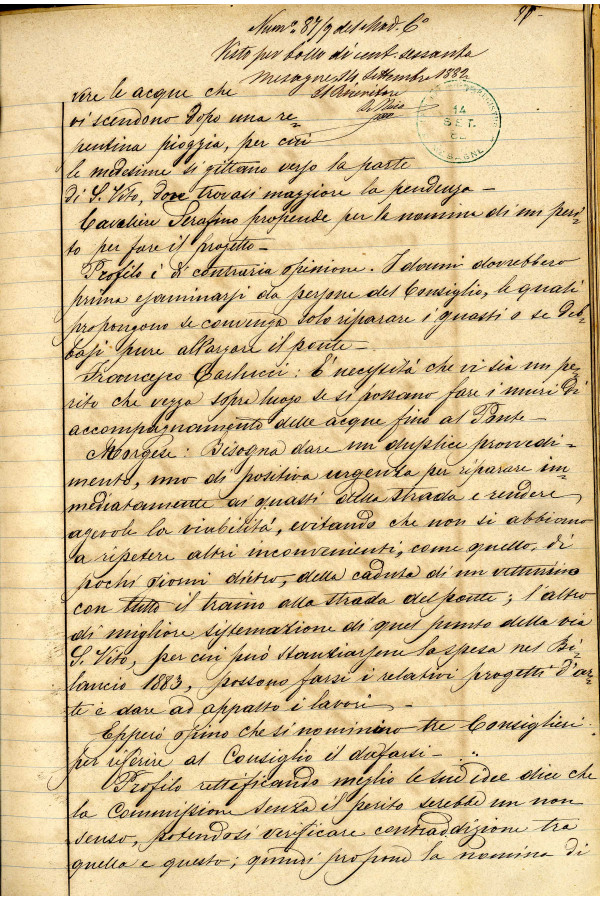 Num.º 87/9 del Mod. 6º
Visto per bollo di cent. sessanta
Mesagne 14 Settembre 1882
Il Ricevitore
vere le acque che
vi scendono dopo una re-
pentina pioggia, per cui
le medesime si gittano verso la parte
di S. Vito, dove trovasi maggiore la pendenza —
Cavaliere Serafino propende per la nomina di un peri-
to per fare il progetto —
Profilo è di contraria opinione. I danni dovrebbero
prima esaminarsi da persone del Consiglio, le quali
propongono se convenga solo riparare i guasti o se deb-
basi pure allargare il ponte —
Francesco Carlucci: È necessità che vi sia un pe-
rito che vegga sopra luogo se si possano fare i muri di
accompagnamento delle acque fino al Ponte —
Morgese: Bisogna dare un duplice provvedi-
mento, uno di positiva urgenza per riparare im-
mediatamente ai guasti della strada e rendere
agevole la viabilità, evitando che non si abbiano
a ripetere altri inconvenienti, come quello, di
pochi giorni dietro, della caduta di un vetturino
con tutto il traino alla strada del ponte; l'altro
di migliore sistemazione di quel punto della via
S. Vito, per cui può stanziarsene la spesa nel Bi-
lancio 1883, possono farsi i relativi progetti d'ar-
te e dare ad appalto i lavori —
Epperò opino che si nominino tre Consiglieri
per riferire al Consiglio il dafarsi —
Profilo rettificando meglio le sue idee dice che
la Commissione senza il perito serebbe un non
senso, potendosi verificare contraddizione tra
quella e questo; quindi propone la nomina di
14
SET.
82